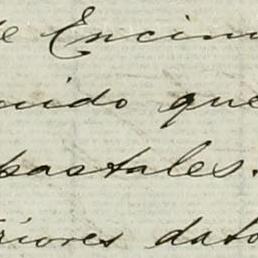 de Encin
nido que
pastales.
riores dato